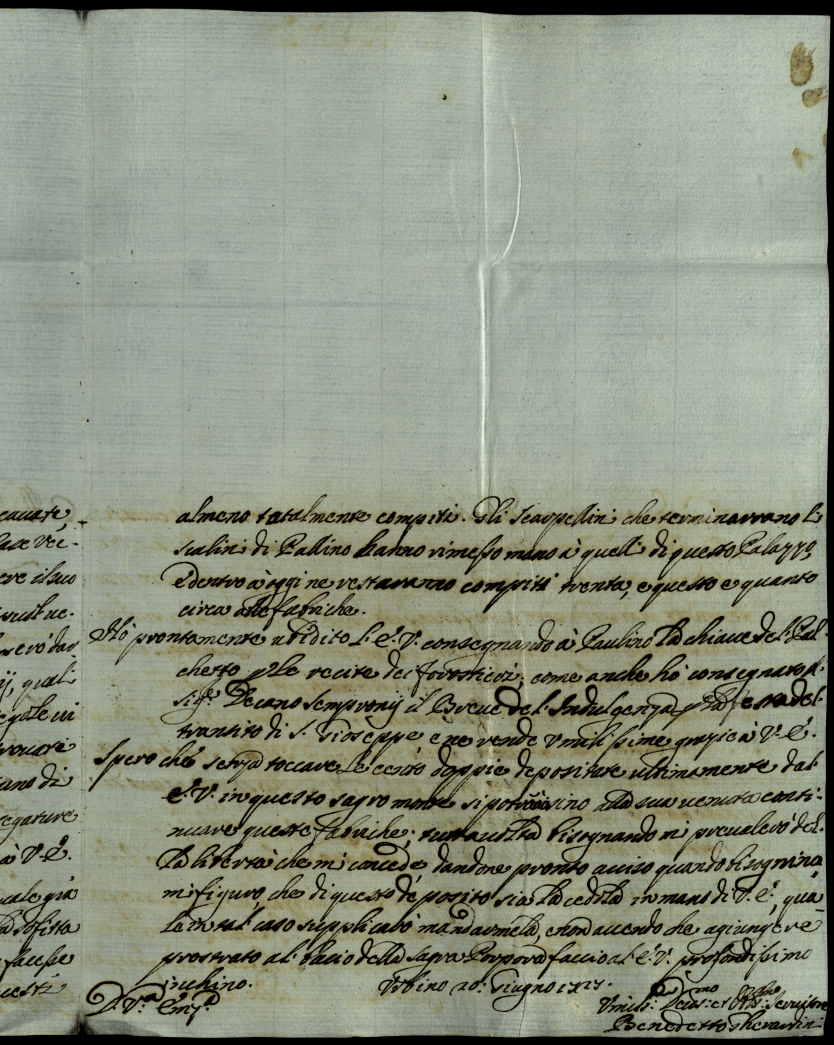 almeno totalmente compiti. Gli Scarpellini che terminarrano li
scalini di Pallino hanno rimesso mano à quelli di questo Palazzo,
e dentro à oggi ne restaranno compiti trenta, e questo e quanto
circa alle fabriche.
Hò prontamente ubidito l'E.V. consegnando à Paulino la chiave del Pal-
chetto p le recite dei forastieri; come anche hò consegnato al
Sig.r Decano Sempronij il Breve del Indulgenza p la festa del
transito di S. Gioseppe e ne rende Umilissime grazie à V.E.
Spero che senza toccare le cento doppie depositate ultimamente dal
E.V. in questo sagro monte si potranno alla sua venuta conti-
nuare queste fabriche; tutta volta bisognando mi prevalerò del-
la libertà che mi concede dandone pronto aviso quando bisognina
mi figuro che di questo deposito sia la cedola in mano di V.E., qua-
le in tal caso supplicarò mandarmela, e non avendo che agiungere
prostrato al bacio della Sagra Porpora faccio al E.V. profondissimo
inchino. Urbino 20: Giugno
D. V.ra Em.za Umil.mo Dev.mo et Obb.mo Servitore
Benedetto
cavate
ere il suo
quali
di
à V.E.
già
sofitta
facesse